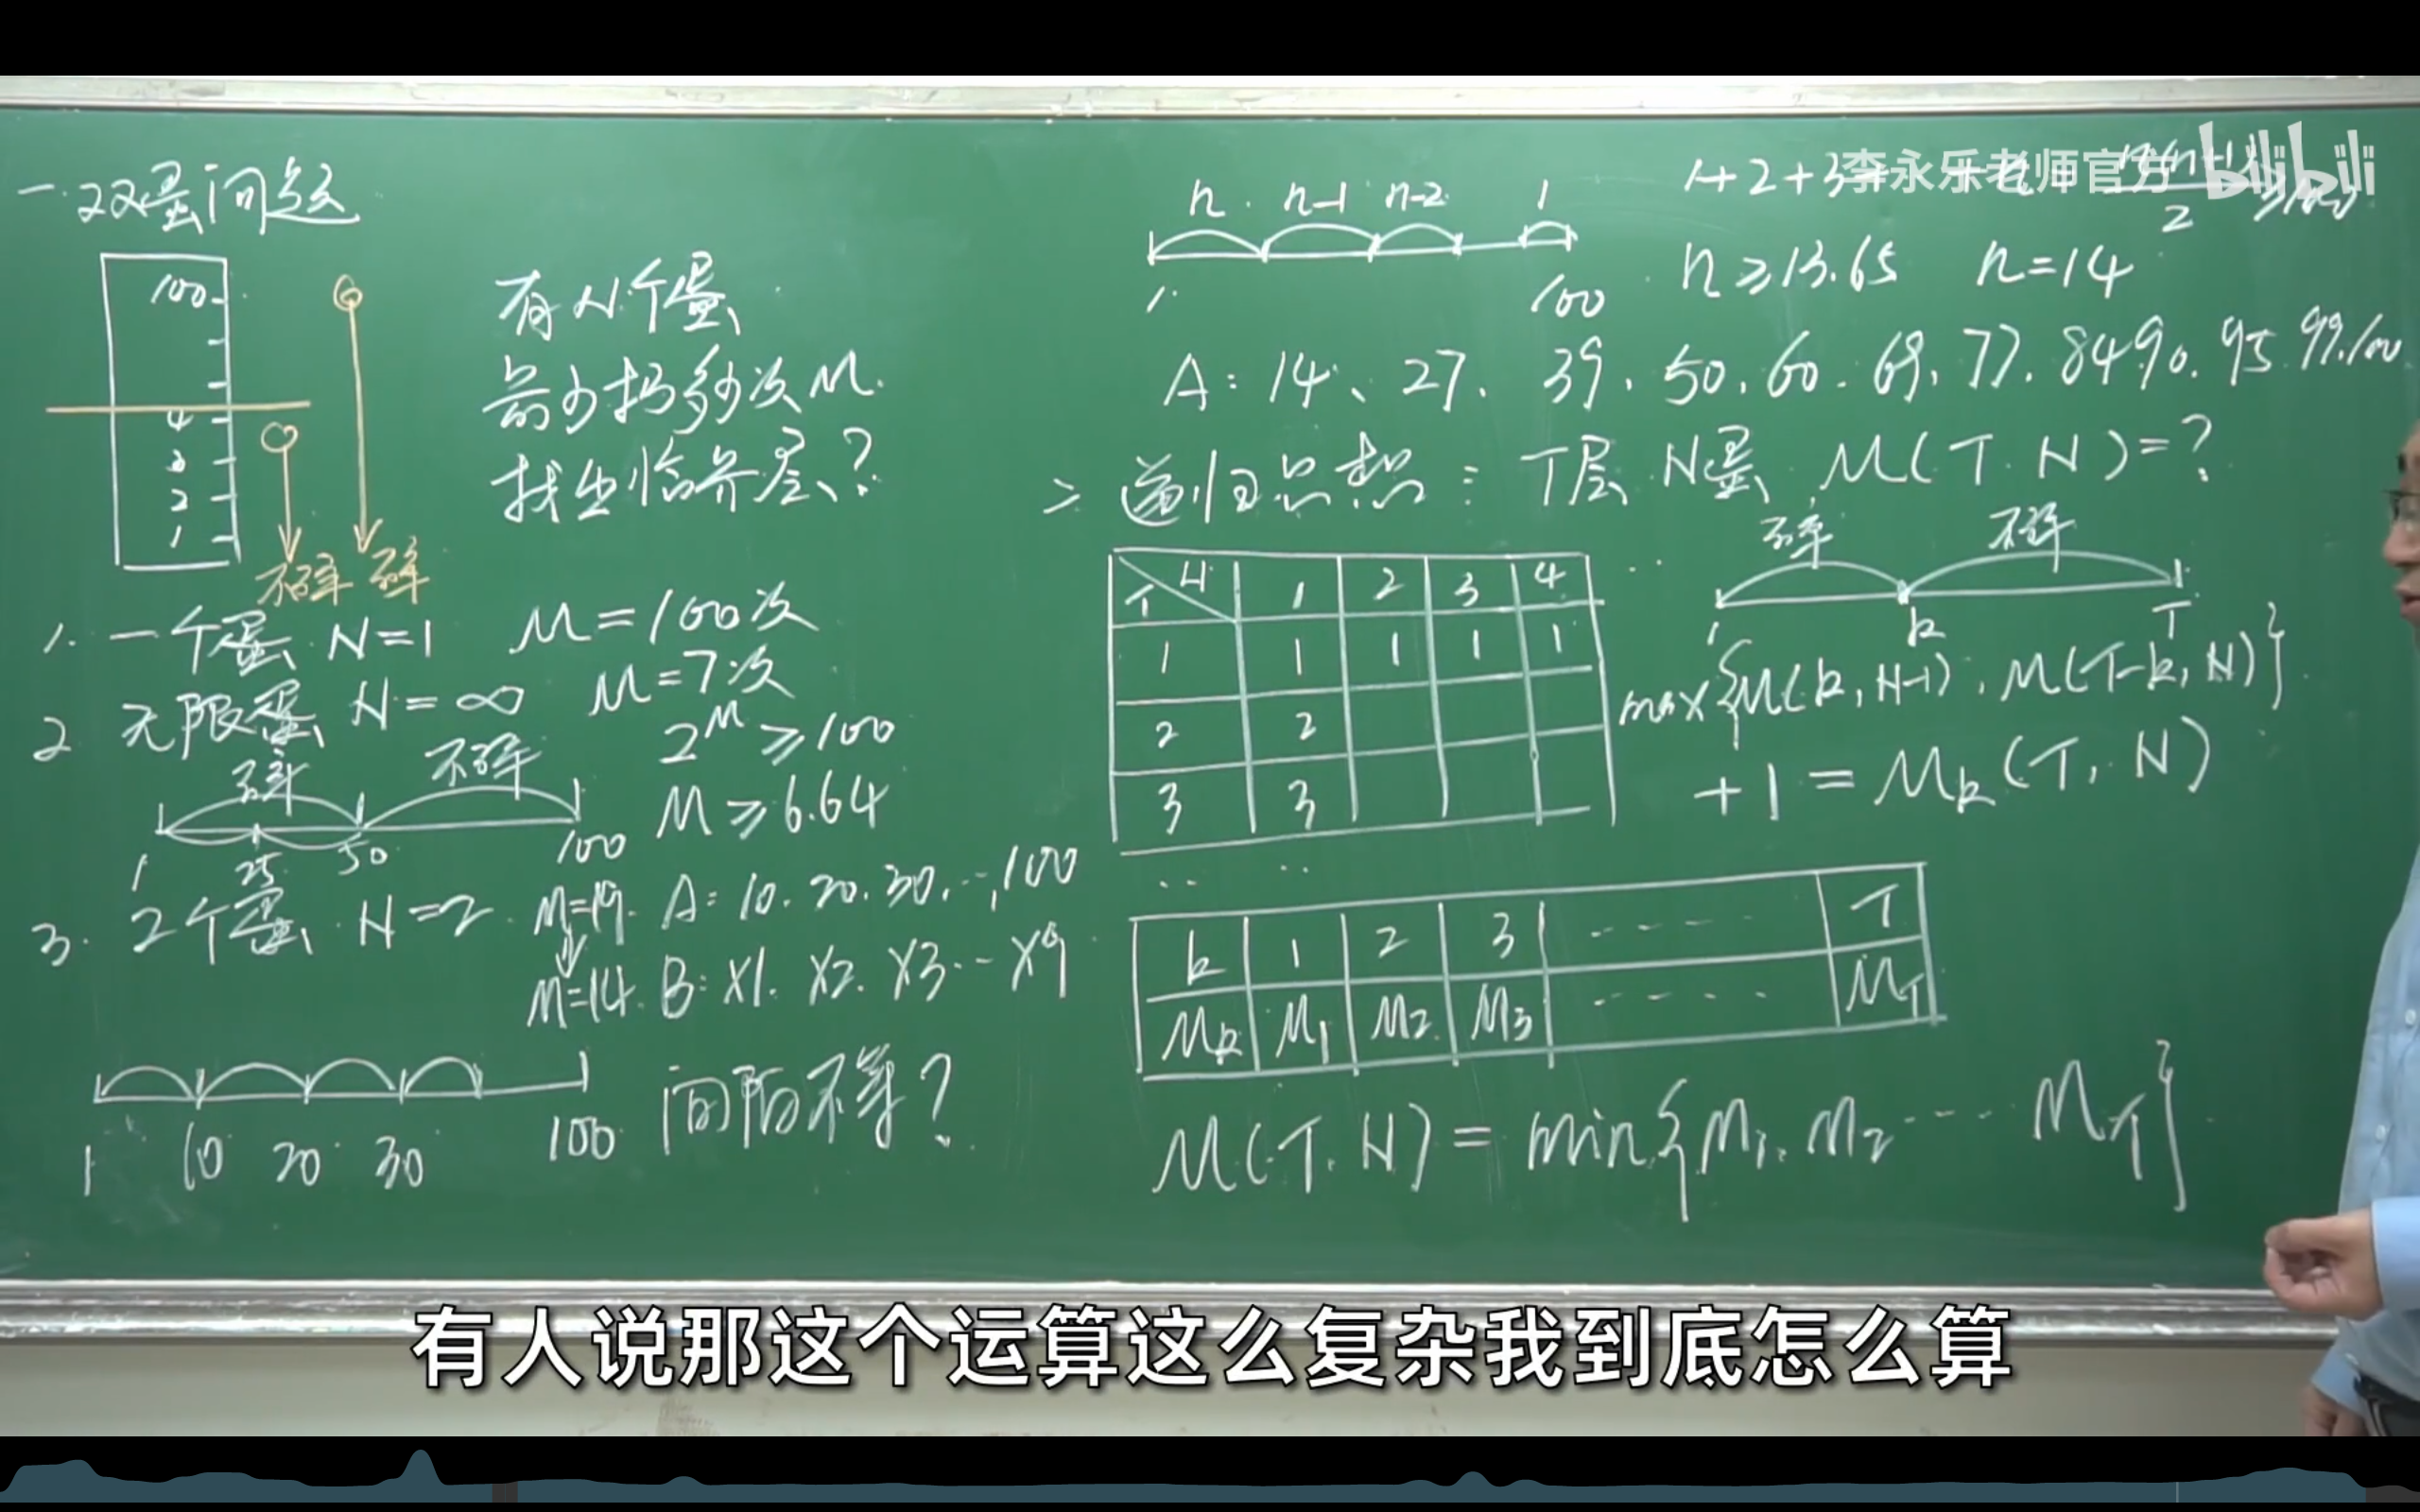 一.双蛋问题
100
4
3
2
1
不碎 碎
有N个蛋
最少扔多少次M.
找出临界层?
1. 一个蛋 N=1 M=100次
2. 无限蛋 N=∞ M=7次
2^M≥100
M≥6.64
碎 不碎
1 25 50 100
3. 2个蛋 N=2. M=19. A: 10. 20. 30. …, 100
M=14. B: X1. X2. X3. … X9
1 10 20 30 100 间隔不等?
n. n-1 n-2 1
1 100
1+2+3+
2
n≥13.65 n=14
A: 14、27、39、50、60、69、77、84、90、95、99、100
二 递归思想: T层 N蛋, M(T.N)=?
T N 1 2 3 4
1 1 1 1 1
2 2
3 3
碎 不碎
1 k T
max{M(k,N-1), M(T-k,N)}
+1=Mk(T,N)
k 1 2 3 ---- T
Mk M1 M2 M3 ---- MT
M(T.N)=min{M1, M2 … MT}
李永乐老师官方 bilibili
有人说那这个运算这么复杂我到底怎么算